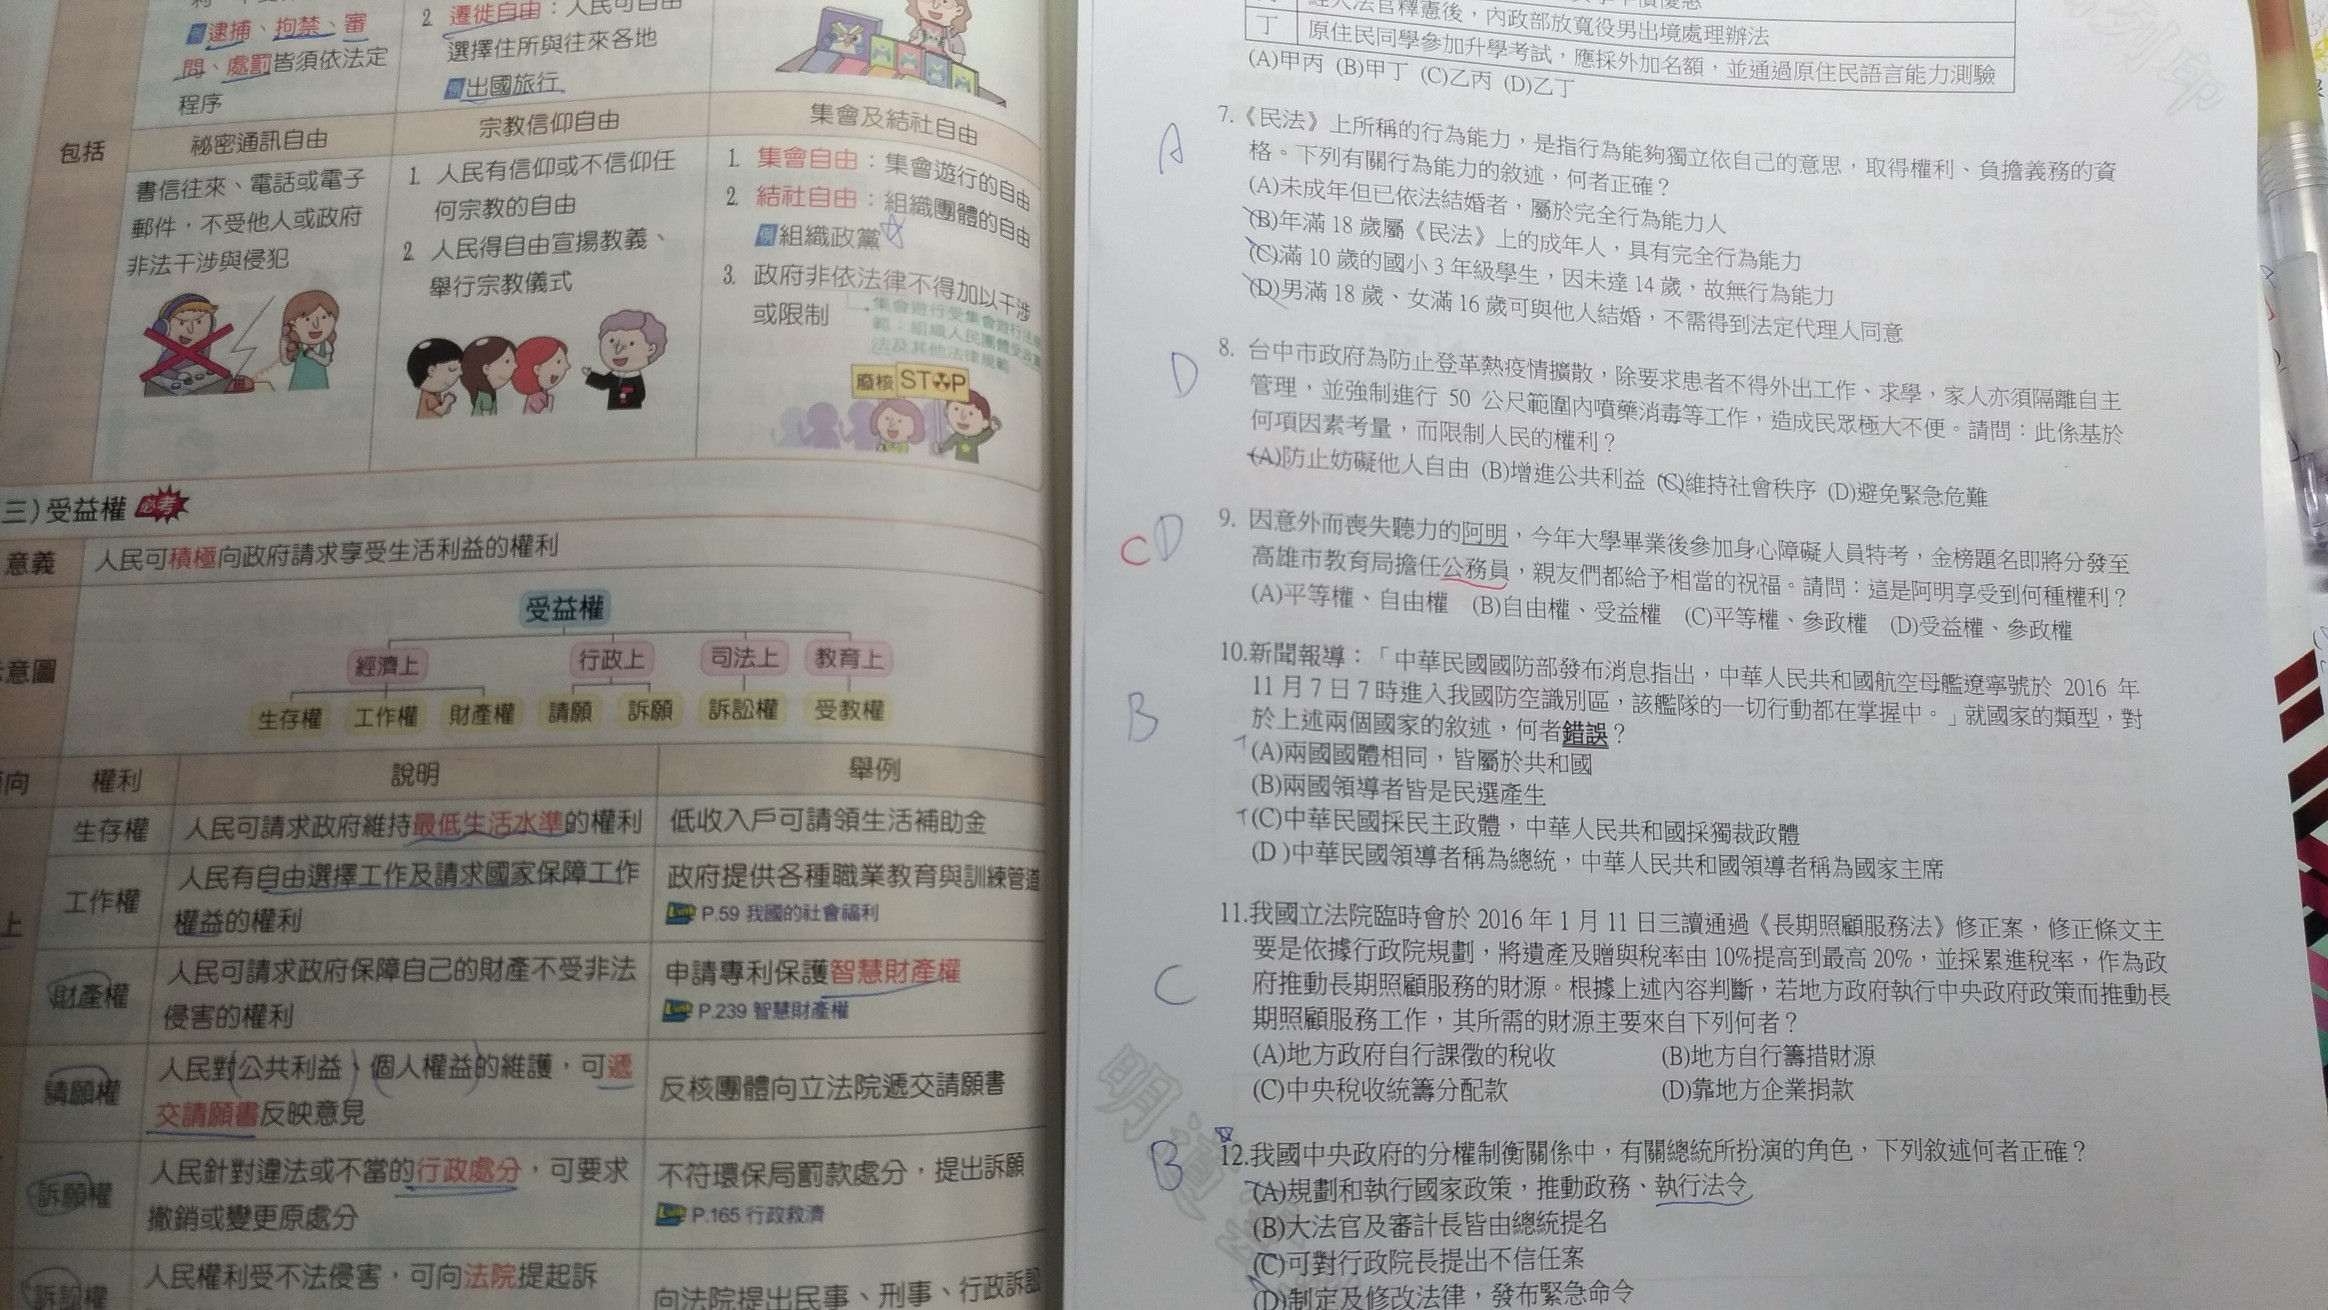 例逮捕、拘禁、審
問、處罰皆須依法定
程序
2. 遷徙自由：人民可自由
選擇住所與往來各地
例出國旅行
包括
祕密通訊自由
書信往來、電話或電子
郵件，不受他人或政府
非法干涉與侵犯
宗教信仰自由
1. 人民有信仰或不信仰任
何宗教的自由
2. 人民得自由宣揚教義、
舉行宗教儀式
集會及結社自由
1. 集會自由：集會遊行的自由
2. 結社自由：組織團體的自由
例組織政黨
3. 政府非依法律不得加以干涉
或限制
集會遊行受集會遊行法
範；組織人民團體受政黨
法及其他法律規範
廢核 STOP
三)受益權 必考
意義
人民可積極向政府請求享受生活利益的權利
意圖
受益權
經濟上 行政上 司法上 教育上
生存權 工作權 財產權 請願 訴願 訴訟權 受教權
向 權利 說明 舉例
生存權 人民可請求政府維持最低生活水準的權利 低收入戶可請領生活補助金
上
工作權
人民有自由選擇工作及請求國家保障工作
權益的權利
政府提供各種職業教育與訓練管道
Link P.59 我國的社會福利
財產權
人民可請求政府保障自己的財產不受非法
侵害的權利
申請專利保護智慧財產權
Link P.239 智慧財產權
請願權
人民對公共利益、個人權益的維護，可遞
交請願書反映意見
反核團體向立法院遞交請願書
訴願權
人民針對違法或不當的行政處分，可要求
撤銷或變更原處分
不符環保局罰款處分，提出訴願
Link P.165 行政救濟
訴訟權
人民權利受不法侵害，可向法院提起訴
向法院提出民事、刑事、行政訴訟
經大法官釋憲後，內政部放寬役男出境處理辦法
丁 原住民同學參加升學考試，應採外加名額，並通過原住民語言能力測驗
(A)甲丙 (B)甲丁 (C)乙丙 (D)乙丁
A
7.《民法》上所稱的行為能力，是指行為能夠獨立依自己的意思，取得權利、負擔義務的資
格。下列有關行為能力的敘述，何者正確？
(A)未成年但已依法結婚者，屬於完全行為能力人
(B)年滿 18 歲屬《民法》上的成年人，具有完全行為能力
(C)滿 10 歲的國小 3 年級學生，因未達 14 歲，故無行為能力
(D)男滿 18 歲、女滿 16 歲可與他人結婚，不需得到法定代理人同意
D
8. 台中市政府為防止登革熱疫情擴散，除要求患者不得外出工作、求學，家人亦須隔離自主
管理，並強制進行 50 公尺範圍內噴藥消毒等工作，造成民眾極大不便。請問：此係基於
何項因素考量，而限制人民的權利？
(A)防止妨礙他人自由 (B)增進公共利益 (C)維持社會秩序 (D)避免緊急危難
C D
9. 因意外而喪失聽力的阿明，今年大學畢業後參加身心障礙人員特考，金榜題名即將分發至
高雄市教育局擔任公務員，親友們都給予相當的祝福。請問：這是阿明享受到何種權利？
(A)平等權、自由權 (B)自由權、受益權 (C)平等權、參政權 (D)受益權、參政權
B
10.新聞報導：「中華民國國防部發布消息指出，中華人民共和國航空母艦遼寧號於 2016 年
11 月 7 日 7 時進入我國防空識別區，該艦隊的一切行動都在掌握中。」就國家的類型，對
於上述兩個國家的敘述，何者錯誤？
(A)兩國國體相同，皆屬於共和國
(B)兩國領導者皆是民選產生
(C)中華民國採民主政體，中華人民共和國採獨裁政體
(D )中華民國領導者稱為總統，中華人民共和國領導者稱為國家主席
C
11.我國立法院臨時會於 2016 年 1 月 11 日三讀通過《長期照顧服務法》修正案，修正條文主
要是依據行政院規劃，將遺產及贈與稅率由 10%提高到最高 20%，並採累進稅率，作為政
府推動長期照顧服務的財源。根據上述內容判斷，若地方政府執行中央政府政策而推動長
期照顧服務工作，其所需的財源主要來自下列何者？
(A)地方政府自行課徵的稅收 (B)地方自行籌措財源
(C)中央稅收統籌分配款 (D)靠地方企業捐款
B
12.我國中央政府的分權制衡關係中，有關總統所扮演的角色，下列敘述何者正確？
(A)規劃和執行國家政策，推動政務、執行法令
(B)大法官及審計長皆由總統提名
(C)可對行政院長提出不信任案
(D)制定及修改法律，發布緊急命令
明道